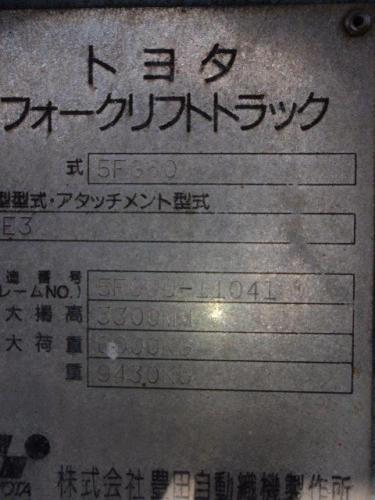 トヨタ
フォークリフトトラック
式 5FG60
型型式・アタッチメント型式
E3
造番号
レームNO.)
大揚高 3300
大荷重
重 9430KG
OTA 株式会社豊田自動織機製作所